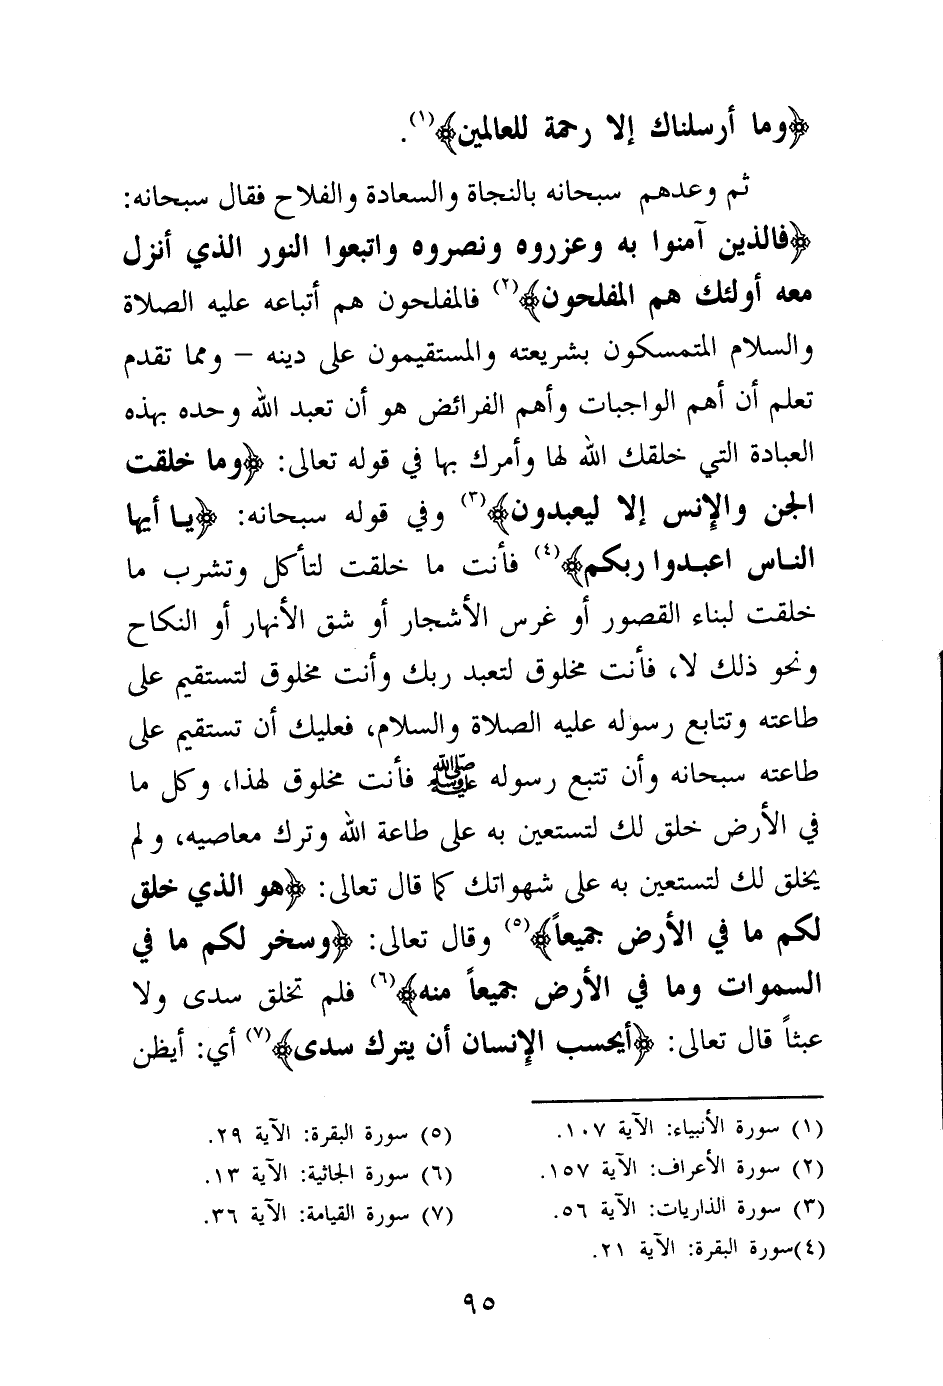 ﴿وما أرسلناك إلا رحمة للعالمين﴾(١).
ثم وعدهم سبحانه بالنجاة والسعادة والفلاح فقال سبحانه:
﴿فالذين آمنوا به وعزروه ونصروه واتبعوا النور الذي أنزل
معه أولئك هم المفلحون﴾(٢) فالمفلحون هم أتباعه عليه الصلاة
والسلام المتمسكون بشريعته والمستقيمون على دينه – ومما تقدم
تعلم أن أهم الواجبات وأهم الفرائض هو أن تعبد الله وحده بهذه
العبادة التي خلقك الله لها وأمرك بها في قوله تعالى: ﴿وما خلقت
الجن والإنس إلا ليعبدون﴾(٣) وفي قوله سبحانه: ﴿يا أيها
الناس اعبدوا ربكم﴾(٤) فأنت ما خلقت لتأكل وتشرب ما
خلقت لبناء القصور أو غرس الأشجار أو شق الأنهار أو النكاح
ونحو ذلك لا، فأنت مخلوق لتعبد ربك وأنت مخلوق لتستقيم على
طاعته وتتابع رسوله عليه الصلاة والسلام، فعليك أن تستقيم على
طاعته سبحانه وأن تتبع رسوله ﷺ فأنت مخلوق لهذا، وكل ما
في الأرض خلق لك لتستعين به على طاعة الله وترك معاصيه، ولم
يخلق لك لتستعين به على شهواتك كما قال تعالى: ﴿هو الذي خلق
لكم ما في الأرض جميعاً﴾(٥) وقال تعالى: ﴿وسخر لكم ما في
السموات وما في الأرض جميعاً منه﴾(٦) فلم تخلق سدى ولا
عبثاً قال تعالى: ﴿أيحسب الإنسان أن يترك سدى﴾(٧) أي: أيظن
(١) سورة الأنبياء: الآية ١٠٧.
(٢) سورة الأعراف: الآية ١٥٧.
(٣) سورة الذاريات: الآية ٥٦.
(٤)سورة البقرة: الآية ٢١.
(٥) سورة البقرة: الآية ٢٩.
(٦) سورة الجاثية: الآية ١٣.
(٧) سورة القيامة: الآية ٣٦.
٩٥